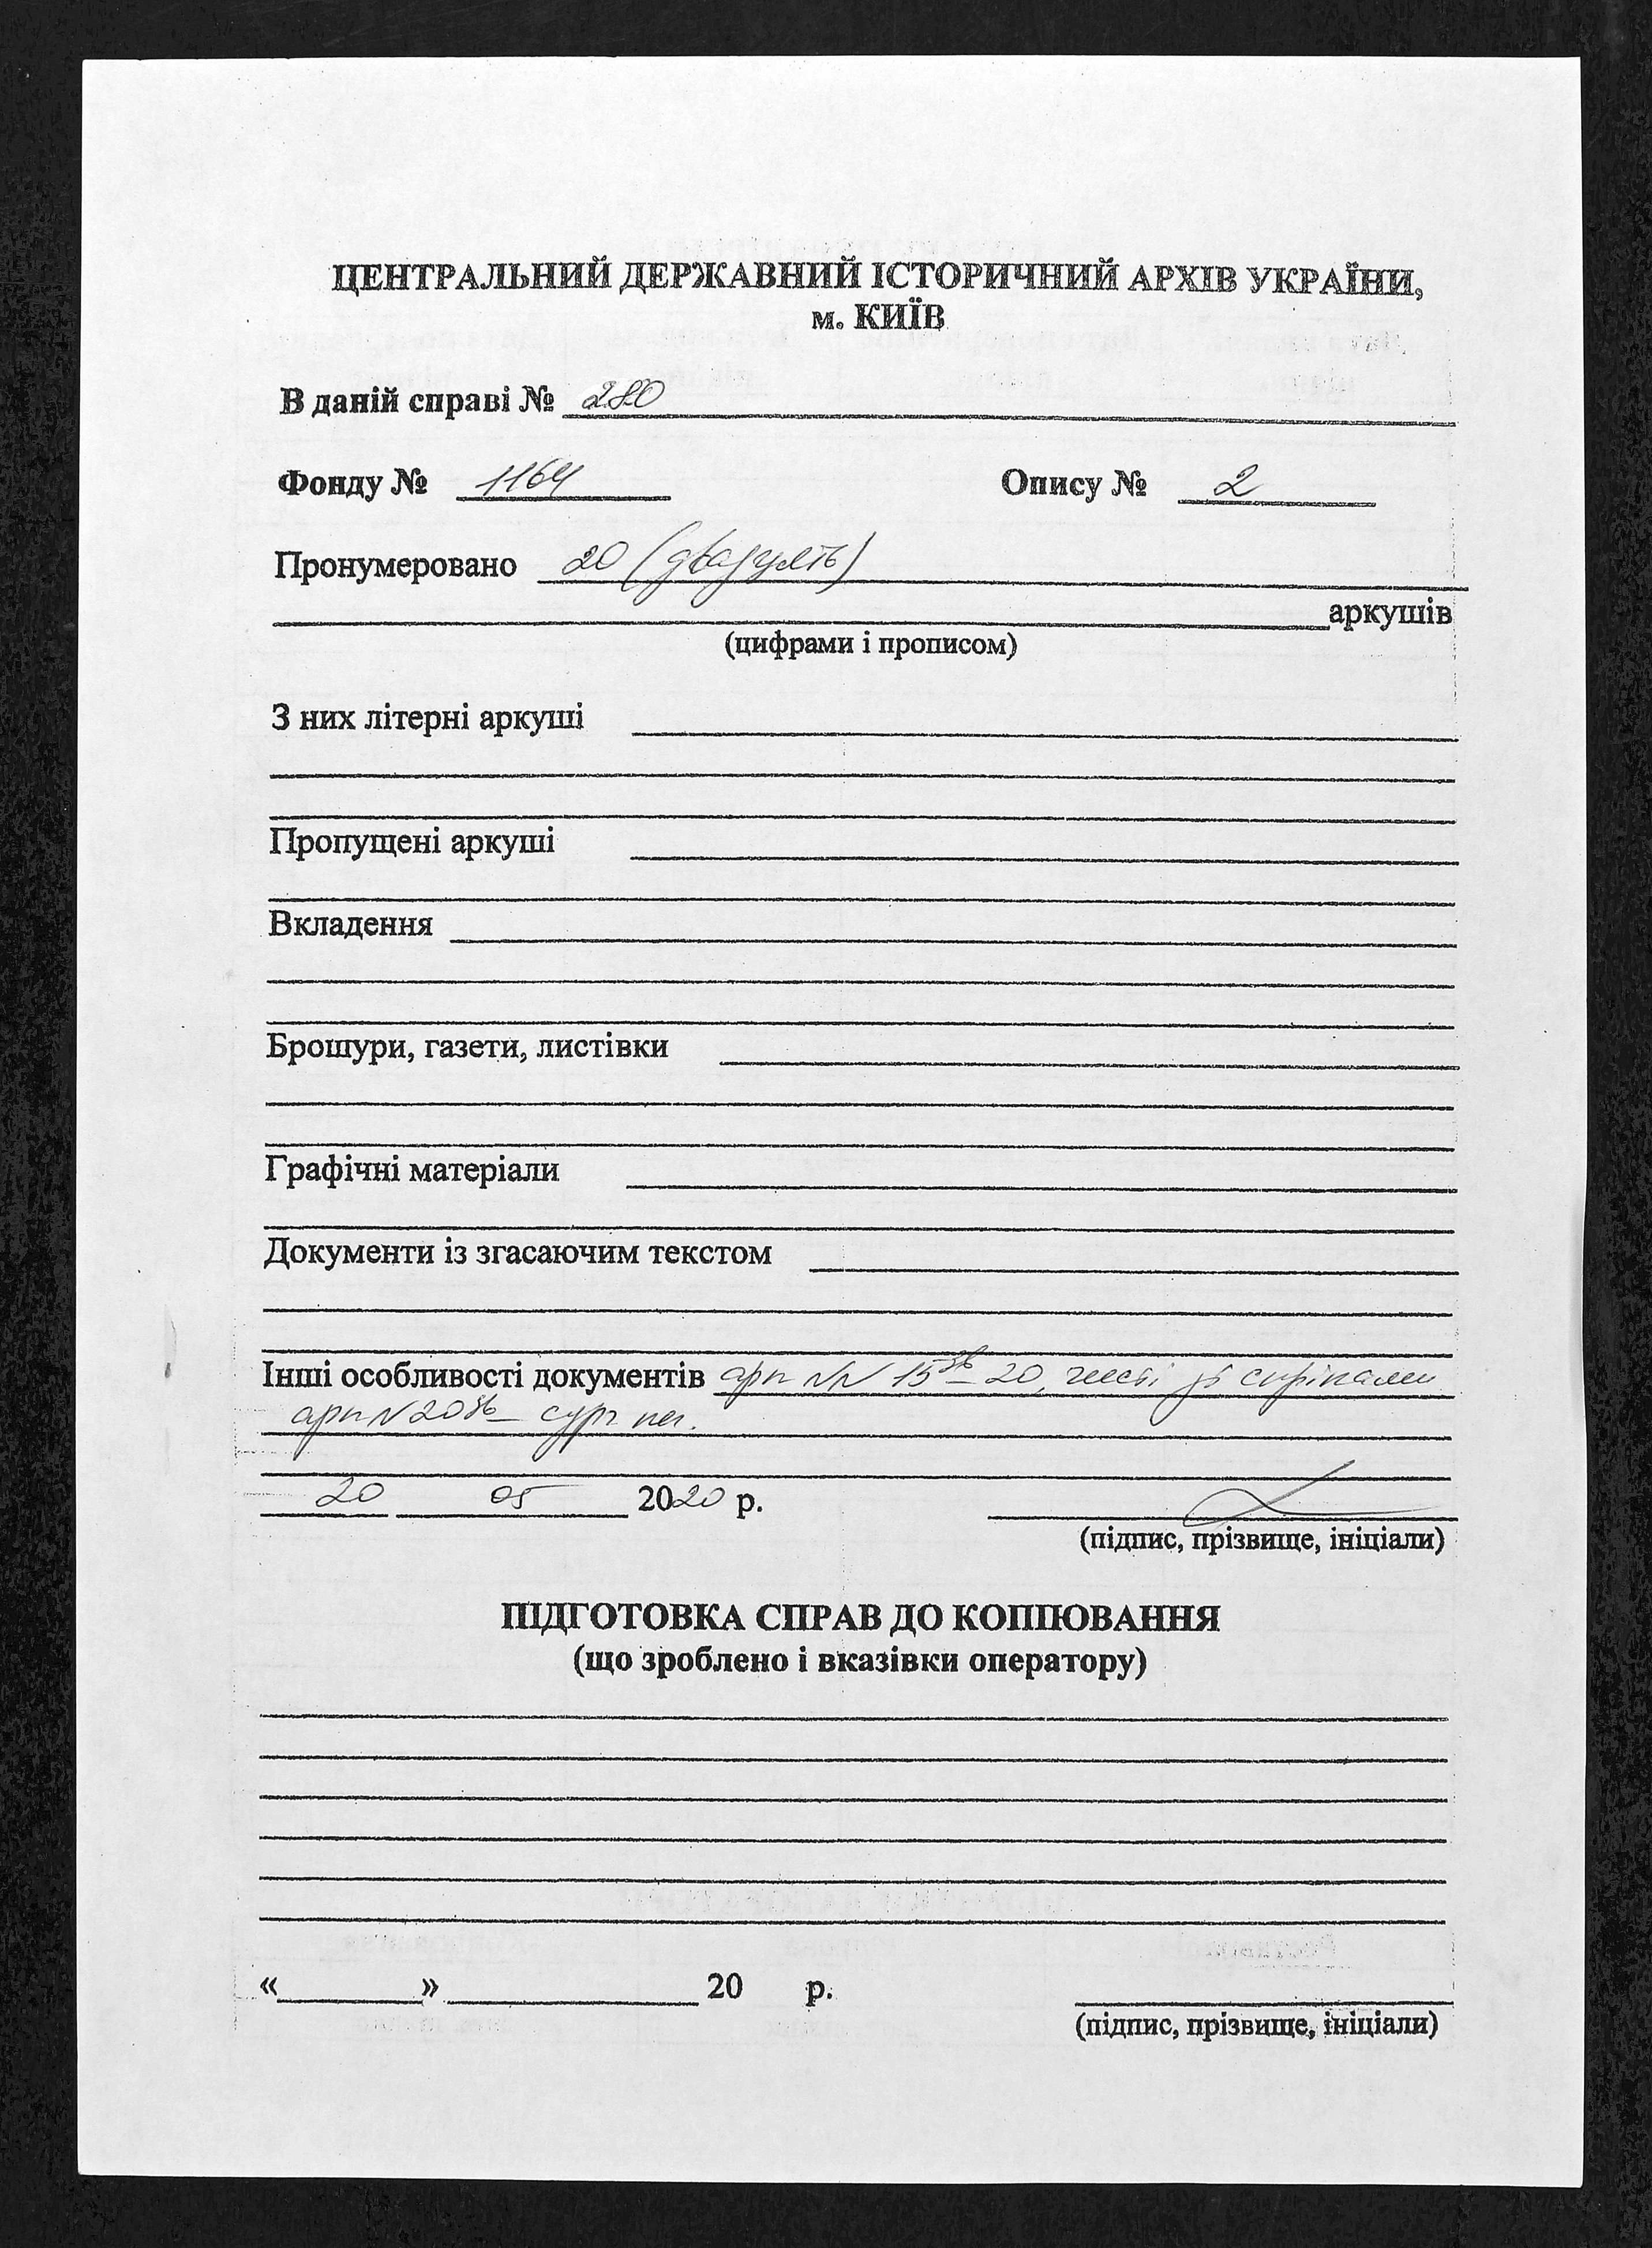 ЦЕНТРАЛЬНИЙ ДЕРЖАВНИЙ ІСТОРИЧНИЙ АРХІВ УКРАЇНИ,
м. КИЇВ
В даній справі № 280
Фонду № 1164 Опису № 2
Пронумеровано 20 (двадцять)
аркушів
(цифрами і прописом)
З них літерні аркуші
Пропущені аркуші
Вкладення
Брошури, газети, листівки
Графічні матеріали
Документи із згасаючим текстом
Інші особливості документів арк №№ 15зв – 20, чисті зі скріпами
арк №20зв – сург печ.
20 05 2020 р.
(підпис, прізвище, ініціали)
ПІДГОТОВКА СПРАВ ДО КОПІЮВАННЯ
(що зроблено і вказівки оператору)
« » 20 р.
(підпис, прізвище, ініціали)